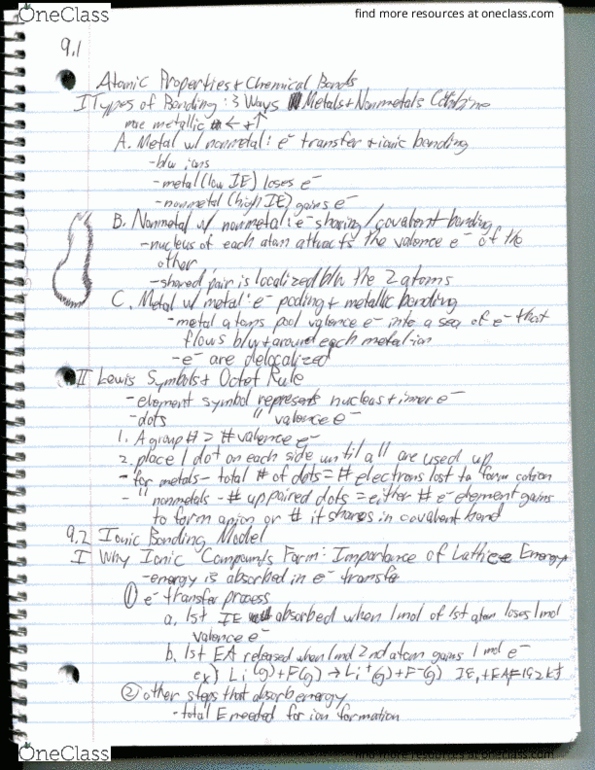 OneClass
find more resources at oneclass.com
9.1
Atomic Properties + Chemical Bonds
I Types of Bonding: 3 Ways Metals + Nonmetals Combine
more metallic ← + ↑
A. Metal w/ nonmetal: e⁻ transfer + ionic bonding
- b/w ions
- metal (low IE) loses e⁻
- nonmetal (high IE) gains e⁻
B. Nonmetal w/ nonmetal: e⁻ sharing / covalent bonding
- nucleus of each atom attracts the valence e⁻ of the
other
- shared pair is localized b/w the 2 atoms
C. Metal w/ metal: e⁻ pooling + metallic bonding
- metal atoms pool valence e⁻ into a sea of e⁻ that
flows b/w + around each metal ion
- e⁻ are delocalized
II Lewis Symbols + Octet Rule
- element symbol represents nucleus + inner e⁻
- dots " valence e⁻
1. A group # = # valence e⁻
2. place 1 dot on each side until all are used up
- for metals - total # of dots = # electrons lost to form cation
- " nonmetals - # unpaired dots = either # e⁻ element gains
to form anion or # it shares in covalent bond
9.2 Ionic Bonding Model
I Why Ionic Compounds Form: Importance of Lattice Energy
- energy is absorbed in e⁻ transfer
① e⁻ transfer process
a. 1st IE absorbed when 1 mol of 1st atom loses 1 mol
valence e⁻
b. 1st EA released when 1 mol 2nd atom gains 1 mol e⁻
ex) Li(g) + F(g) → Li⁺(g) + F⁻(g) IE₁ + EA = 192 kJ
② other steps that absorb energy
- total E needed for ion formation
OneClass
find more resources at oneclass.com